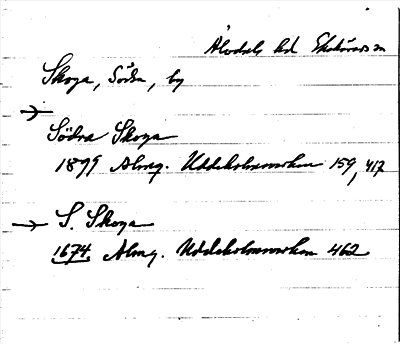 Älvdals hd Ekshärads sn
Skoga, Södra, by
Södra Skoga
1879 Almq. Uddeholmsverken 159, 417
S. Skoga
1674. Almq. Uddeholmsverken 462